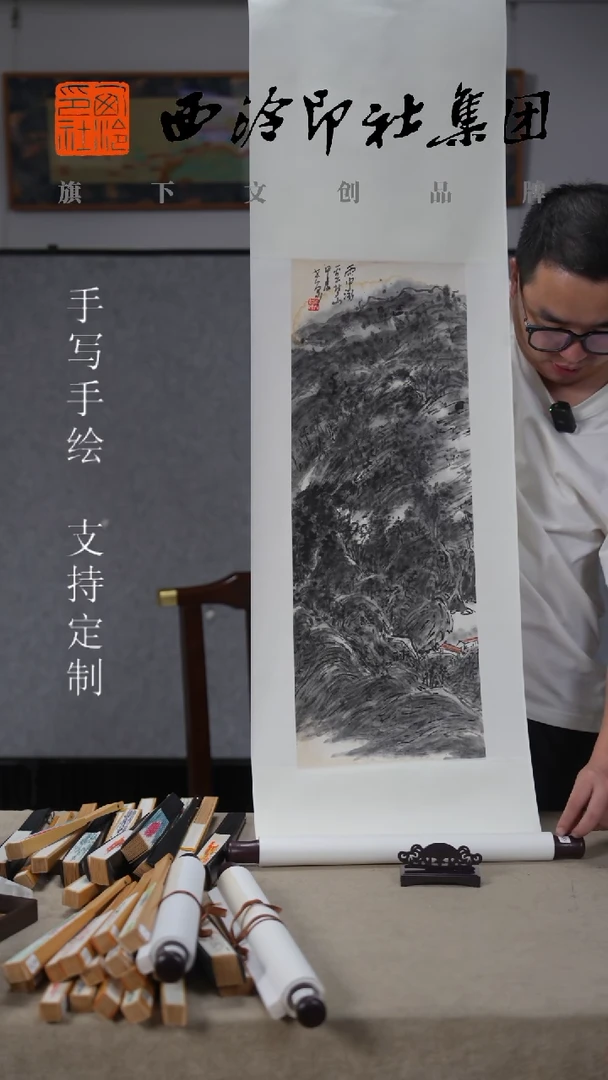 西泠印社
西泠印社集团
旗下文创品牌
手写手绘 支持定制